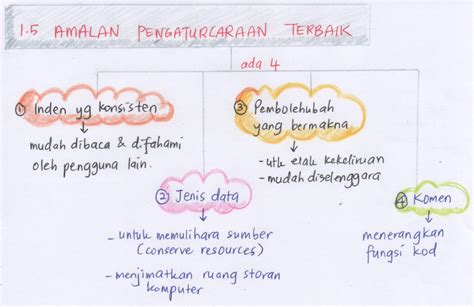 1.5 AMALAN PENGATURCARAAN TERBAIK
ada 4
① Inden yg konsisten
mudah dibaca & difahami
oleh pengguna lain.
② Jenis data
- untuk memulihara sumber
(conserve resources)
- menjimatkan ruang storan
komputer
③ Pembolehubah
yang bermakna
- utk elak kekeliruan
- mudah diselenggara
④ Komen
menerangkan
fungsi kod